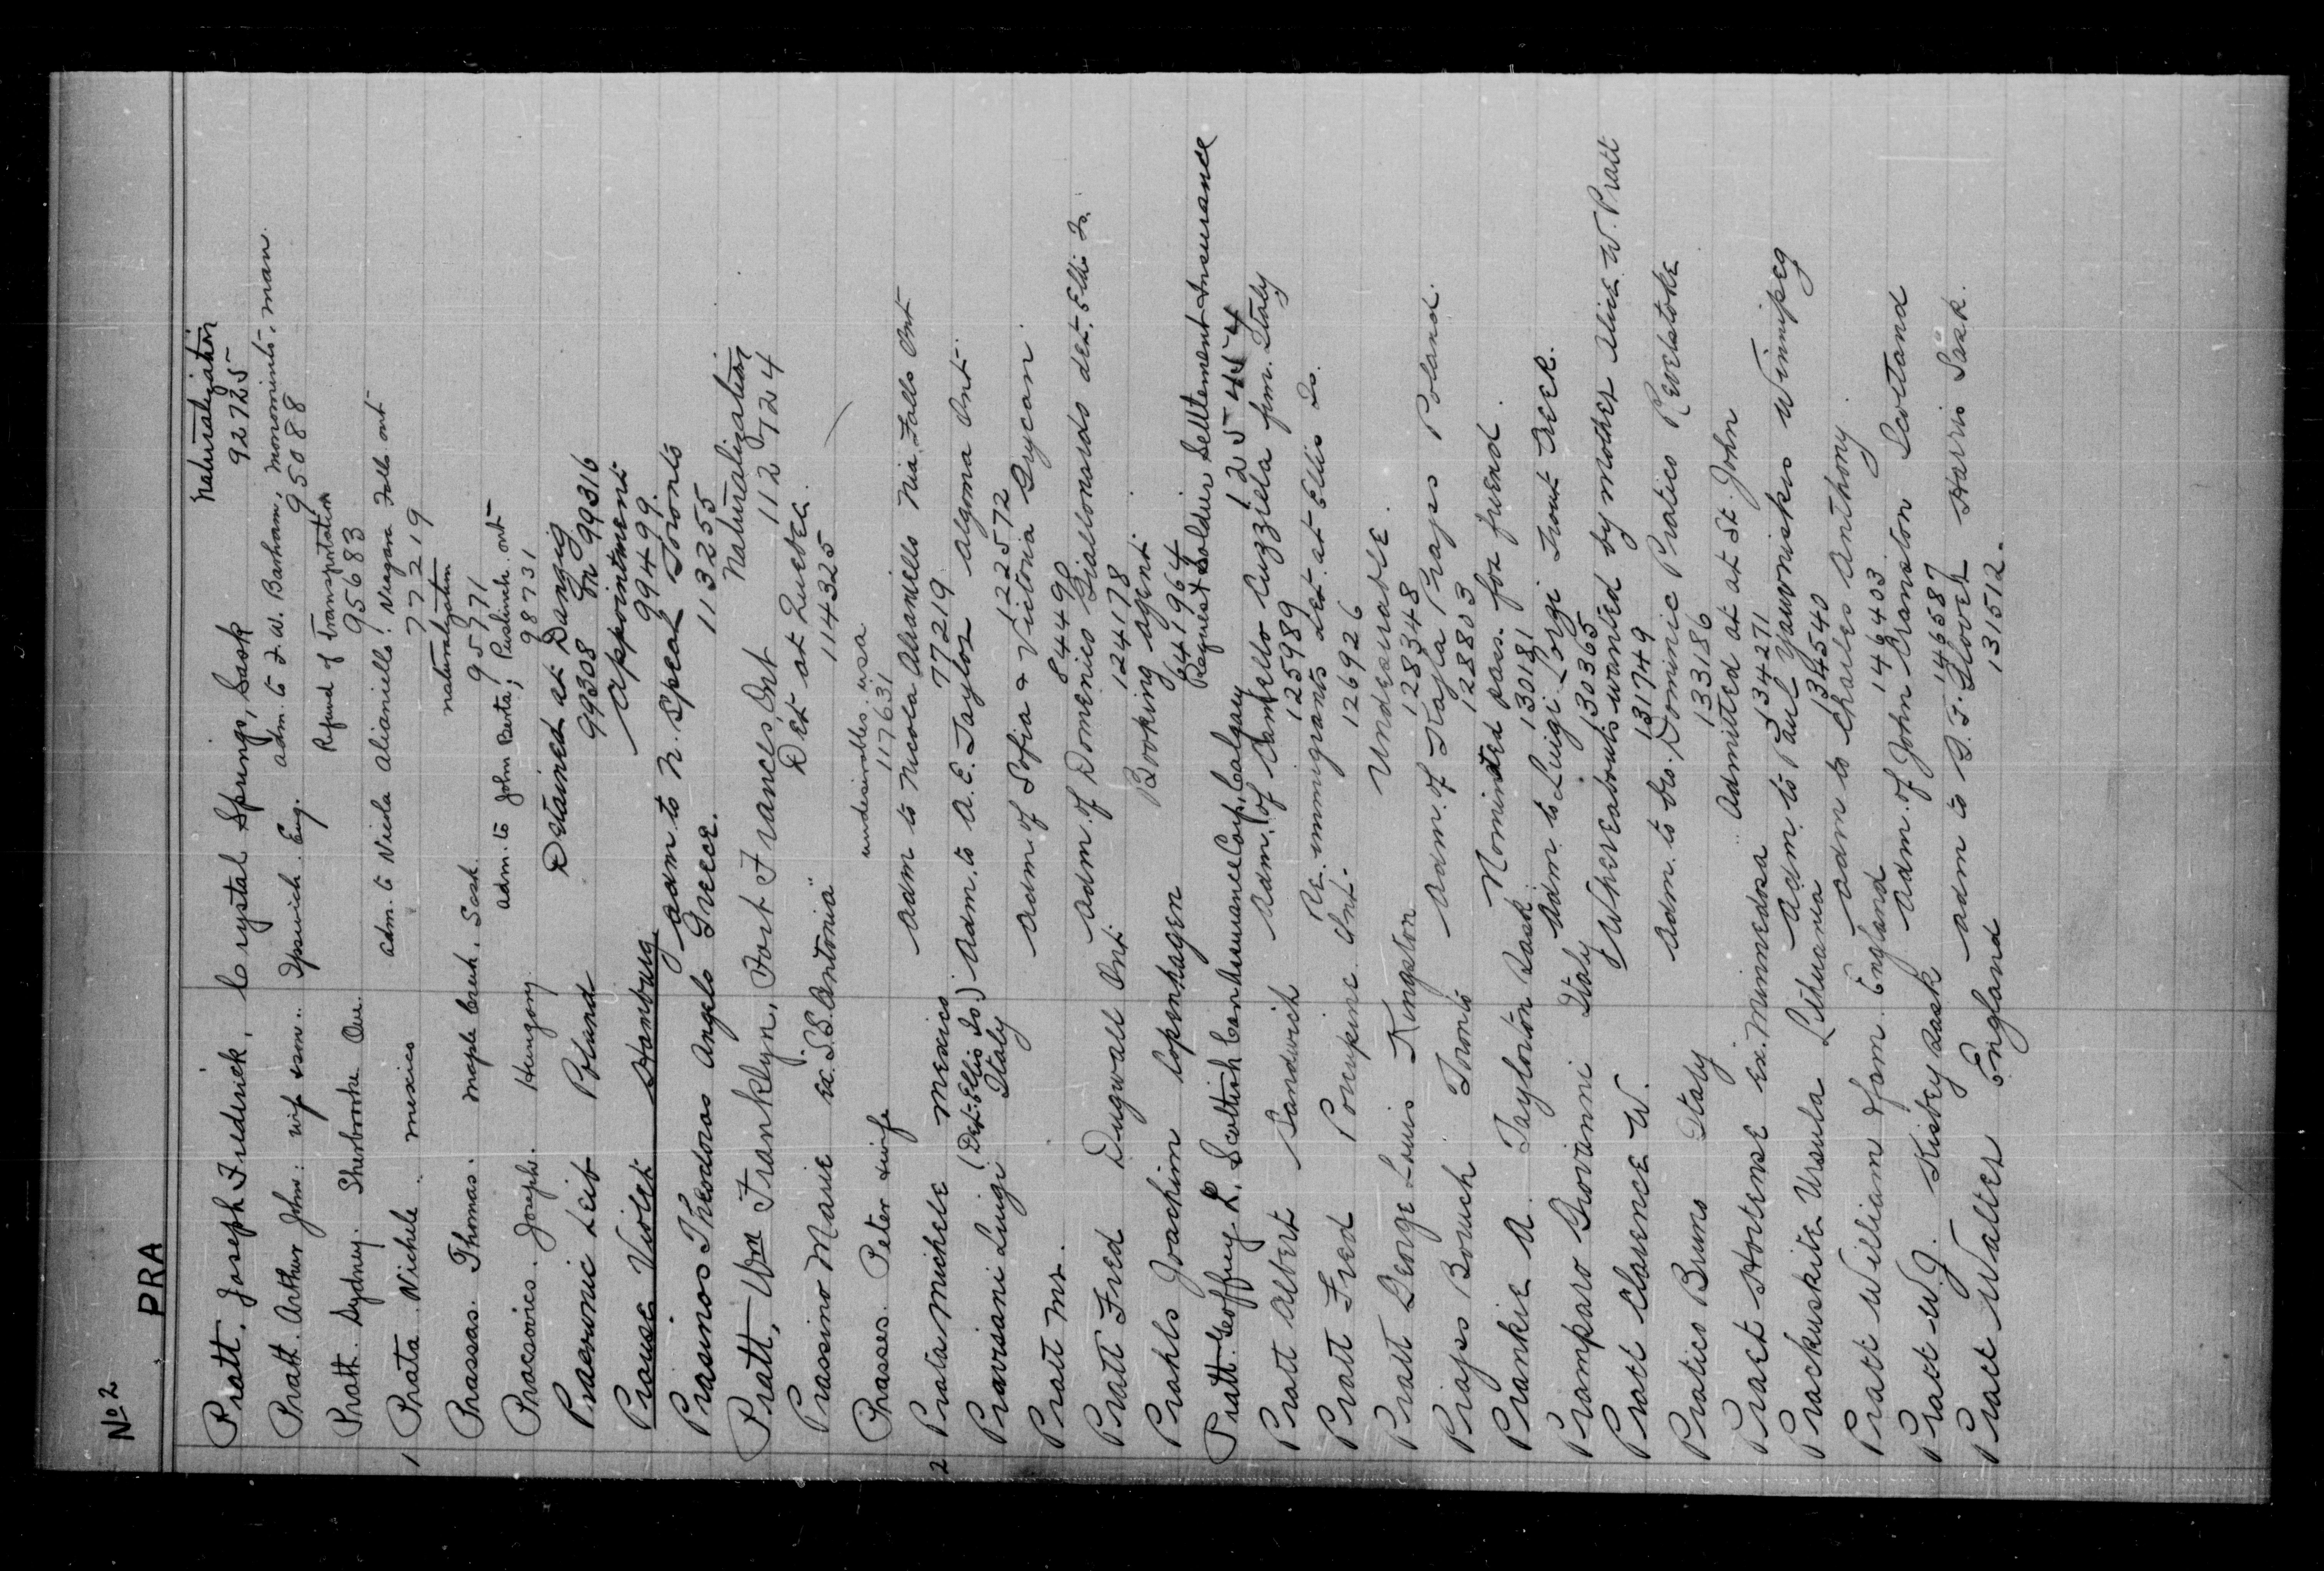 No 2
PRA
Pratt, Joseph Frederick, Crystal Springs, Sask Naturalization
92725
Pratt. Arthur John. wife & son.. Ipswich. Eng. adm. to J. W. Barham, Monominto, Man.
95088
Pratt. Sydney. Sherbrooke Que. Refund of Transportation
95683
1 Prata. Michele. mexico adm. to Nicola Alianiello. Niagara Falls ont
772219
Prassas. Thomas. Maple Creek. Sask. naturalization
95771
Pracsovics. Joseph. Hungary. adm. to John Barta; Puslinch. ont
98731
Praeronic Leib Poland Detained at Danzig
99308 99316
Prause Violet Hamburg Appointment
99499
Prasinos Theodoros Angelo Greece. Adm to N. Speal Toronto
113255
Pratt, Wm Franklyn, Fort Frances, Ont Naturalization
112724
Prassino Marie ex. S.S. "Antonia" Det at Quebec.
114325
Prasses. Peter & wife undesirables. usa
117631
2 Prata Michele Mexico Adm to Nicola Alianiello Nia. Falls Ont
77219
Pravisani Luigi (Det. Ellis Is.) Italy Adm. to A. E. Taylor Algoma Ont.
122572
Pratt Mr. Adm of Sofia & Victoria Grycan.
84498
Pratt Fred Dugwall Ont. Adm. of Domenico Giallonardo det. Ellis Is.
124178
Prahls Joachim Copenhagen Booking agent.
641964
Pratt. Geoffrey L. Scottish Can. Assurance Corp. Calgary Request Soldier Settlement Insurance
125454
Pratt Albert Sandwich Adm. of Carmello Cuzziela from. Italy
125989
Pratt Fred Porcupine Ont. Re. immigrants det. at Ellis Is.
126926
Pratt George Louis Kingston Undesirable.
128348
Prajs Boruch Toronto Adm. of Kajla Prajs Poland.
128803
Prankie A. Taylorton Sask. Nominated pass. for friend.
130181
Pramparo Giovanni Italy Adm. to Luigi Lorgi Trout Creek.
130365
Pratt Clarence W. Whereabouts wanted by mother Alice W. Pratt
131749
Pratico Bruno Italy Adm. to bro. Dominic Pratico Revelstoke
133186
Praet Hortense ex. Minnedosa Admitted at at St. John
134271
Prackuskite Ursula Lithuania Adm. to Paul Yauvniskis Winnipeg
134540
Pratt William from England Adm to Charles Anthony.
146403
Pratt W. J. Kisbey Sask Adm. of John Cranston Scotland
146587
Pratt Walter England Adm to S. F. Glover Harris Sask.
131512.